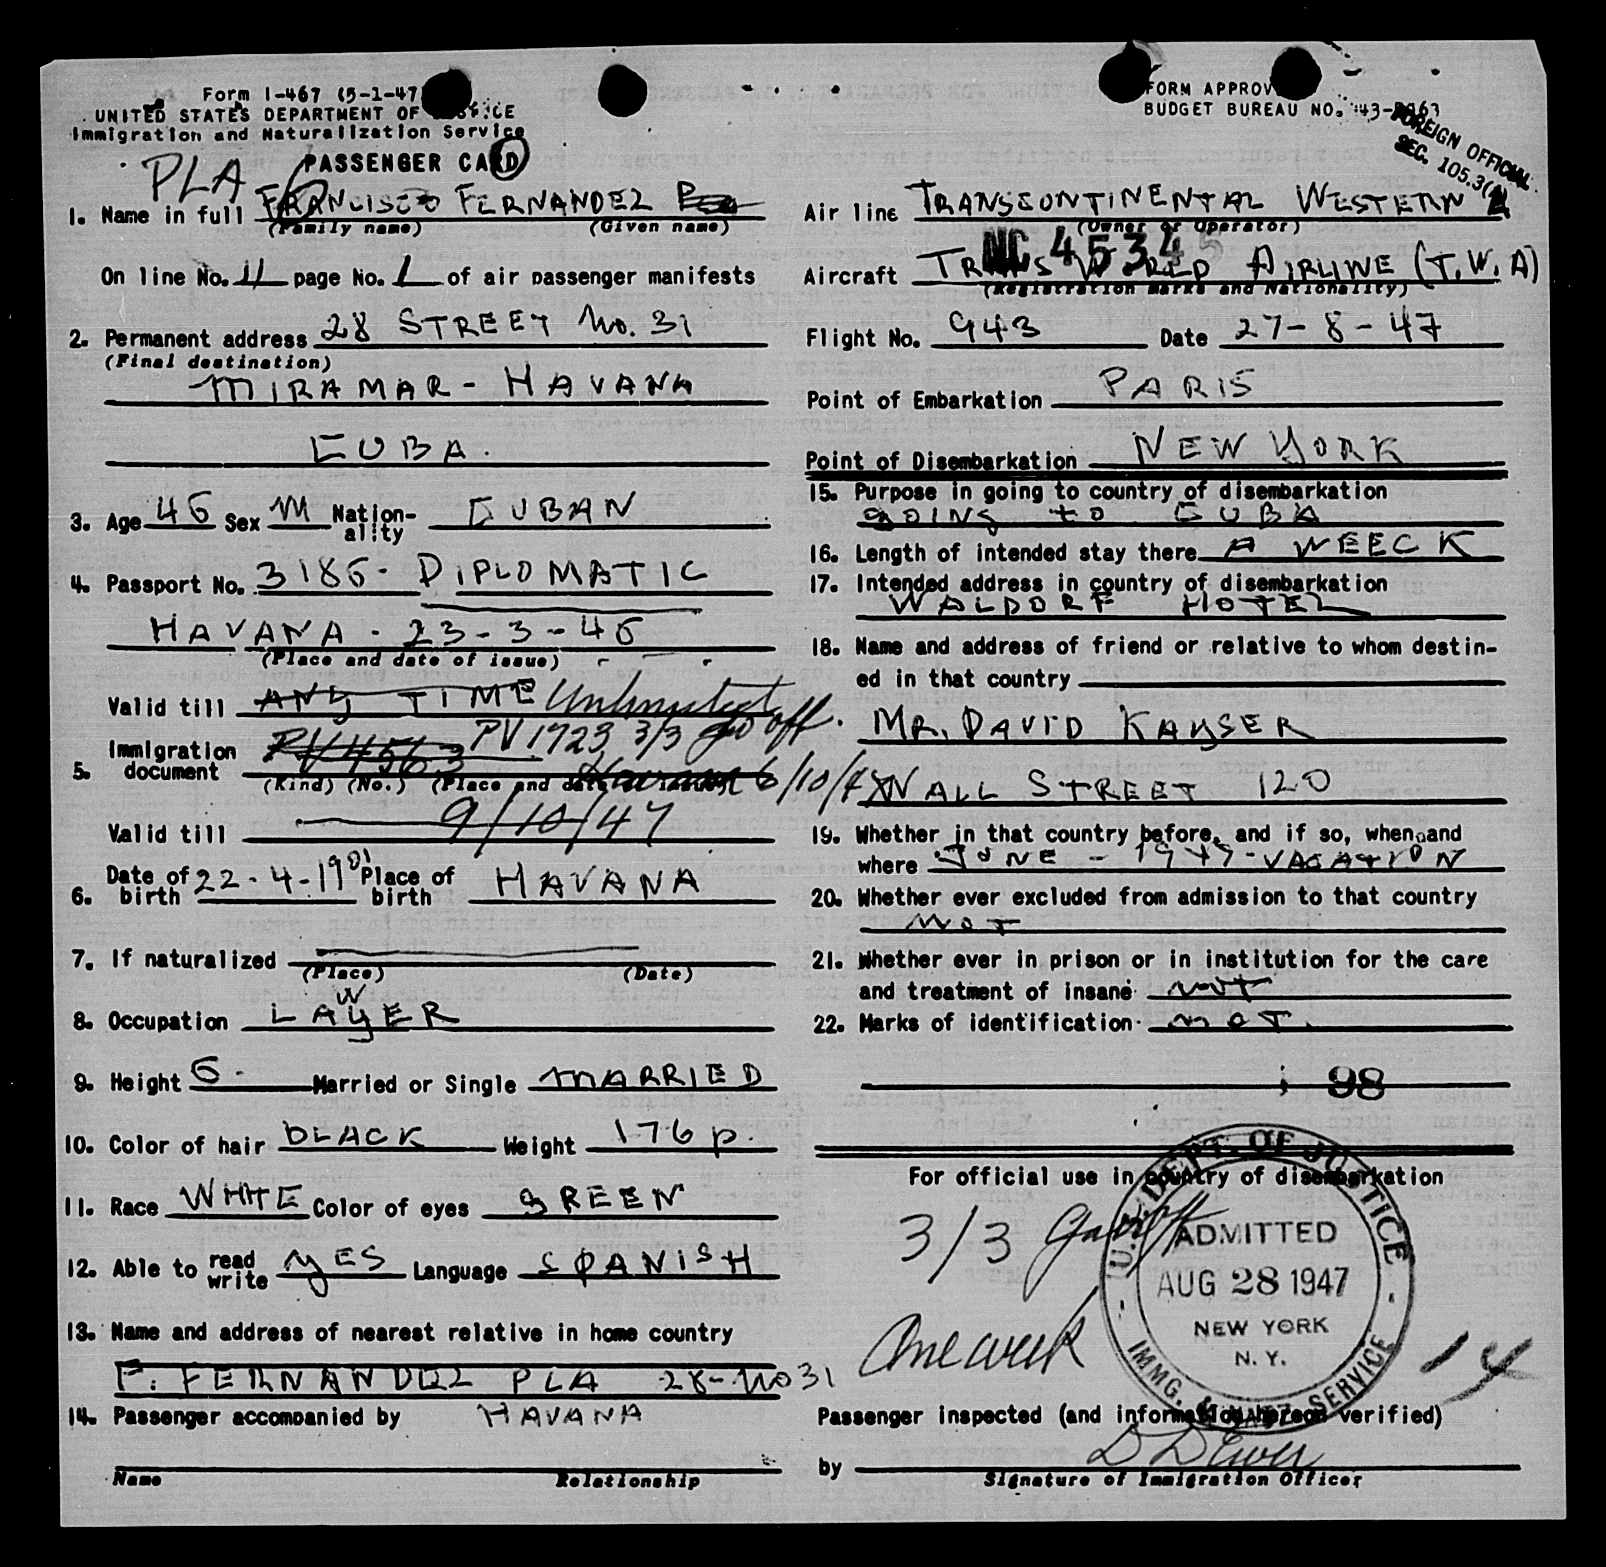 Form I-467 (5-1-47)
UNITED STATES DEPARTMENT OF JUSTICE
Immigration and Naturalization Service
PASSENGER CARD
PLA
1. Name in full FRANCISCO FERNANDEZ
(Family name) (Given name)
On line No. 11 page No. 1 of air passenger manifests
2. Permanent address 28 STREET No. 31
(Final destination)
MIRAMAR - HAVANA
CUBA.
3. Age 46 Sex M Nation-ality CUBAN
4. Passport No. 3186 - DIPLOMATIC
HAVANA - 23-3-46
(Place and date of issue)
Valid till ANY TIME Unlimited
5. Immigration document PV 4563 PV 1723 3/3 go off.
(Kind) (No.) (Place and date of issue) Havana 6/10/47
Valid till 9/10/47
6. Date of birth 22-4-1901 Place of birth HAVANA
7. If naturalized
(Place) (Date)
8. Occupation LAWYER
9. Height 6. Married or Single MARRIED
10. Color of hair BLACK Weight 176 p.
11. Race WHITE Color of eyes GREEN
12. Able to read write YES Language SPANISH
13. Name and address of nearest relative in home country
F. FERNANDEZ PLA 28-No 31
14. Passenger accompanied by HAVANA
Name Relationship
FORM APPROVED
BUDGET BUREAU NO. 43-R063
FOREIGN OFFICIAL
SEC. 105.3(A)
Air line TRANSCONTINENTAL WESTERN A
(Owner or Operator)
NC 45345
Aircraft TRANS WORLD AIRLINE (T.W.A)
(Registration marks and Nationality)
Flight No. 943 Date 27-8-47
Point of Embarkation PARIS
Point of Disembarkation NEW YORK
15. Purpose in going to country of disembarkation
GOING TO CUBA
16. Length of intended stay there A WEECK
17. Intended address in country of disembarkation
WALDORF HOTEL
18. Name and address of friend or relative to whom destin-
ed in that country
MR. DAVID KAYSER
WALL STREET 120
19. Whether in that country before, and if so, when and
where JUNE - 1947 - VACATION
20. Whether ever excluded from admission to that country
NOT
21. Whether ever in prison or in institution for the care
and treatment of insane NOT
22. Marks of identification NOT.
98
For official use in country of disembarkation
3/3
U.S. DEPT. OF JUSTICE
ADMITTED
AUG 28 1947
NEW YORK
N. Y.
IMMG. & NATZ. SERVICE
One week
14
Passenger inspected (and information hereon verified)
by
Signature of Immigration Officer